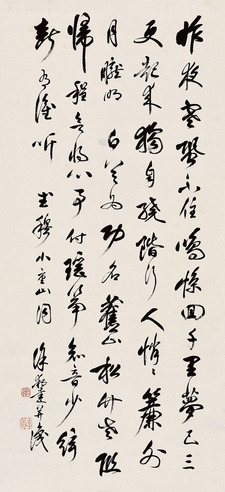 昨夜寒蛩不住鳴驚回千里夢已三
更起來獨自繞階行人悄悄簾外
月朧明白首為功名舊山松竹老阻
歸程欲將心事付瑤箏知音少絃
斷有誰聽 穆小重山詞